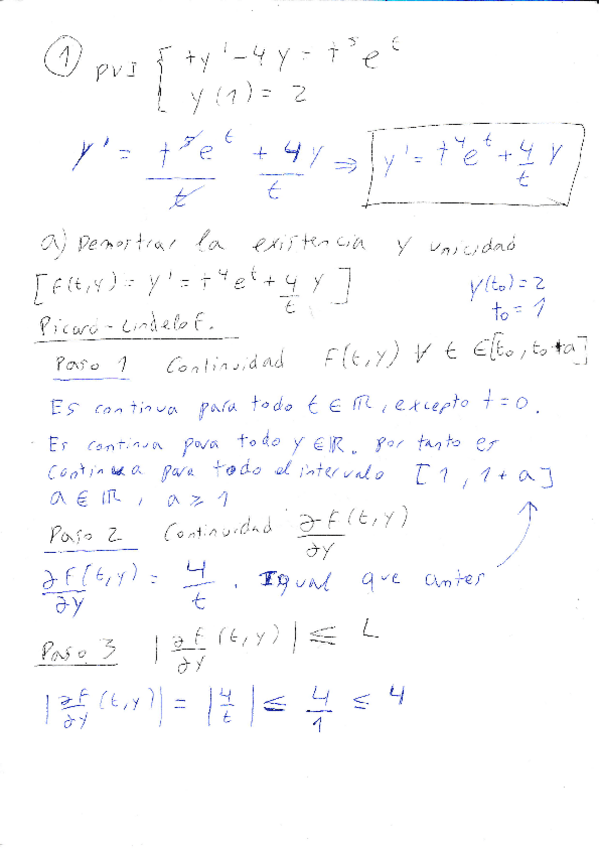 ① PVI { ty' - 4y = t⁵eᵗ
y(1) = 2
y' = t⁵eᵗ/t + 4y/t ⇒ y' = t⁴eᵗ + 4/t y
a) Demostrar la existencia y unicidad
[F(t,y) = y' = t⁴eᵗ + 4/t y]
y(t₀) = 2
t₀ = 1
Picard - Lindelof.
Paso 1 Continuidad F(t,y) ∀ t ∈ [t₀, t₀+a]
Es continua para todo t ∈ ℝ, excepto t = 0.
Es continua para todo y ∈ ℝ. Por tanto es
continua para todo el intervalo [1, 1+a]
a ∈ ℝ, a ⩾ 1
Paso 2 Continuidad ∂F(t,y)/∂y
∂F(t,y)/∂y = 4/t. Igual que antes
Paso 3 |∂F/∂y (t,y)| ≤ L
|∂F/∂y (t,y)| = |4/t| ≤ 4/1 ≤ 4